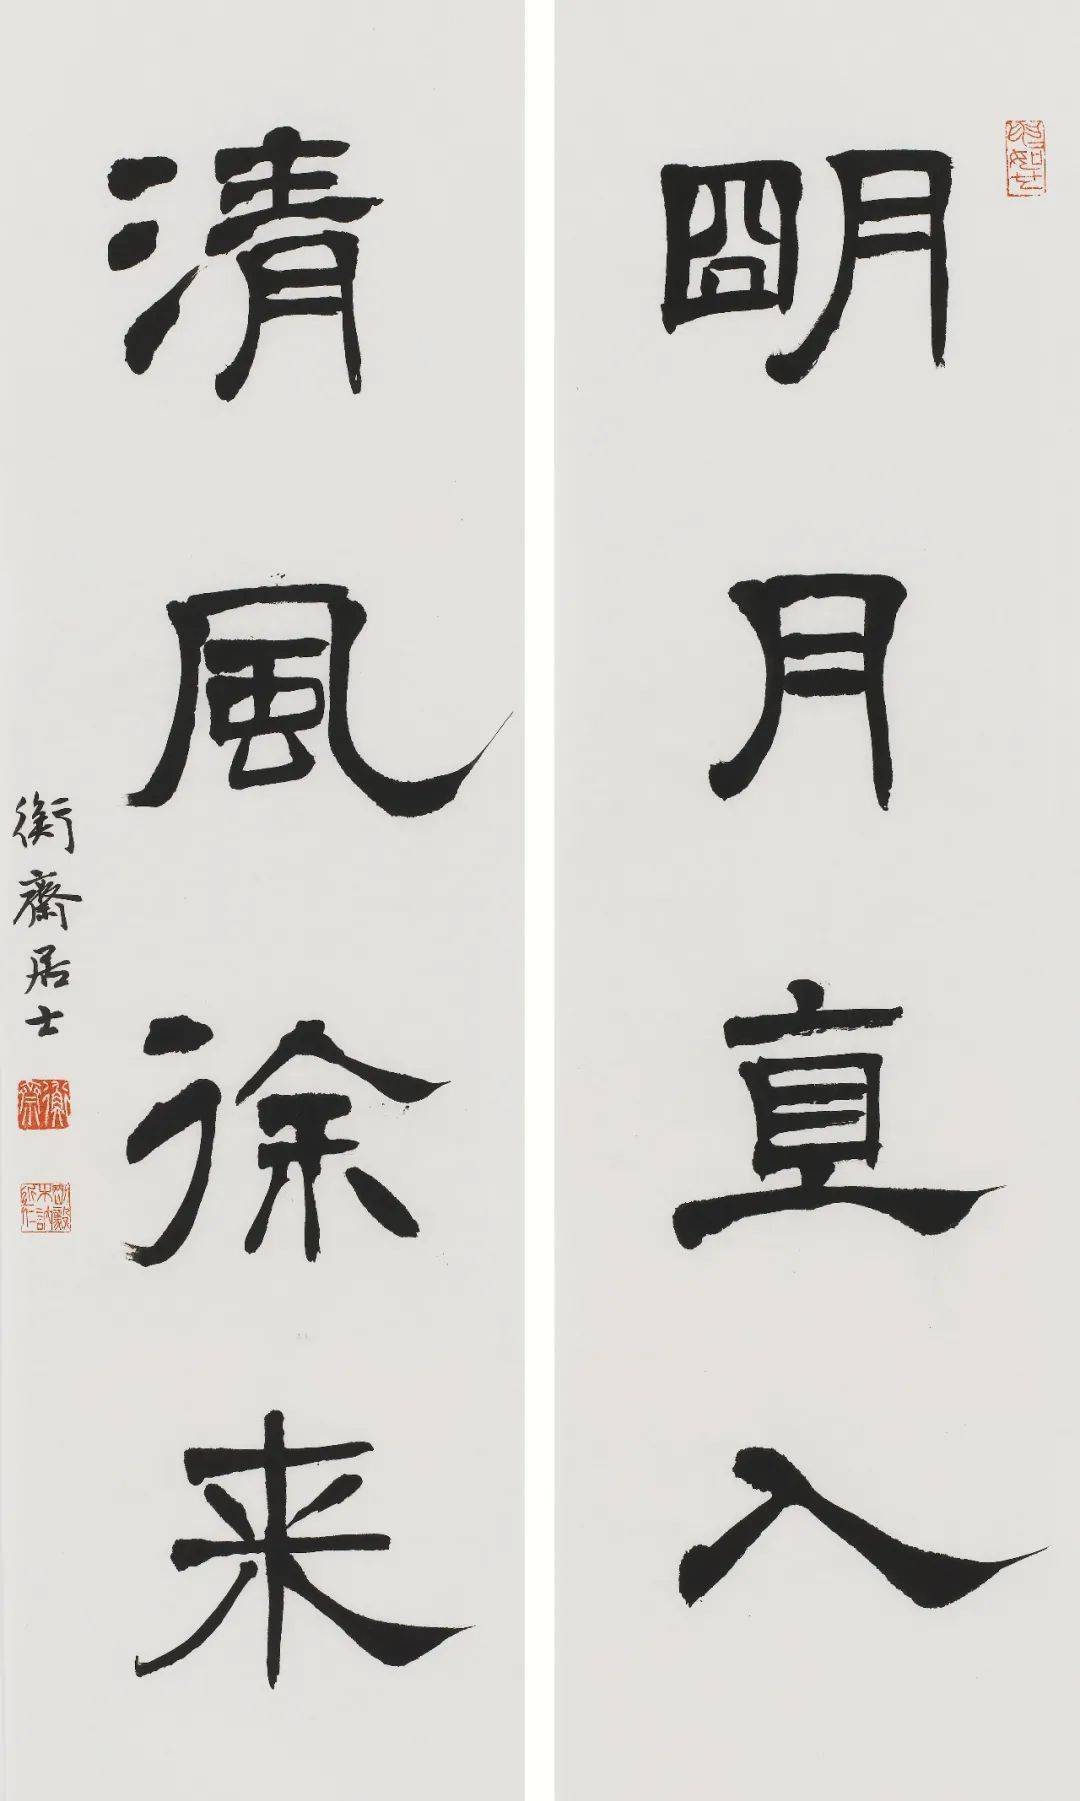 明月直入
清風徐来
衡齋居士